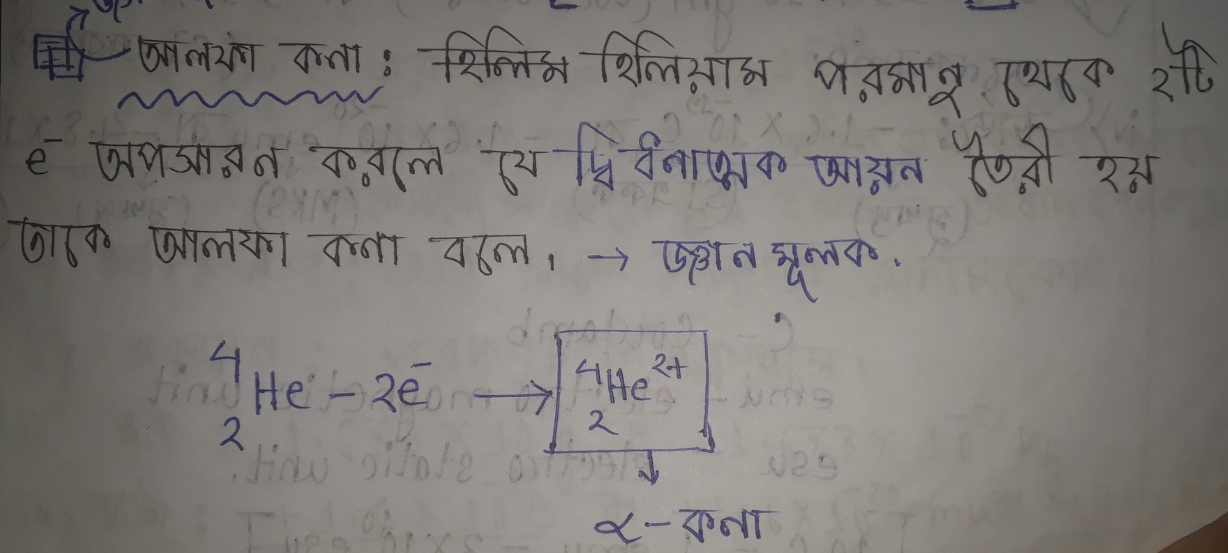 আলফা কনা : হিলিম হিলিয়াম পরমানু থেকে ২টি
e⁻ অপসারন করলে যে দ্বি ধনাত্মক আয়ন তৈরী হয়
তাকে আলফা কনা বলে। → জ্ঞান মূলক.
⁴₂He – 2e⁻ → ⁴₂He²⁺
α – কনা